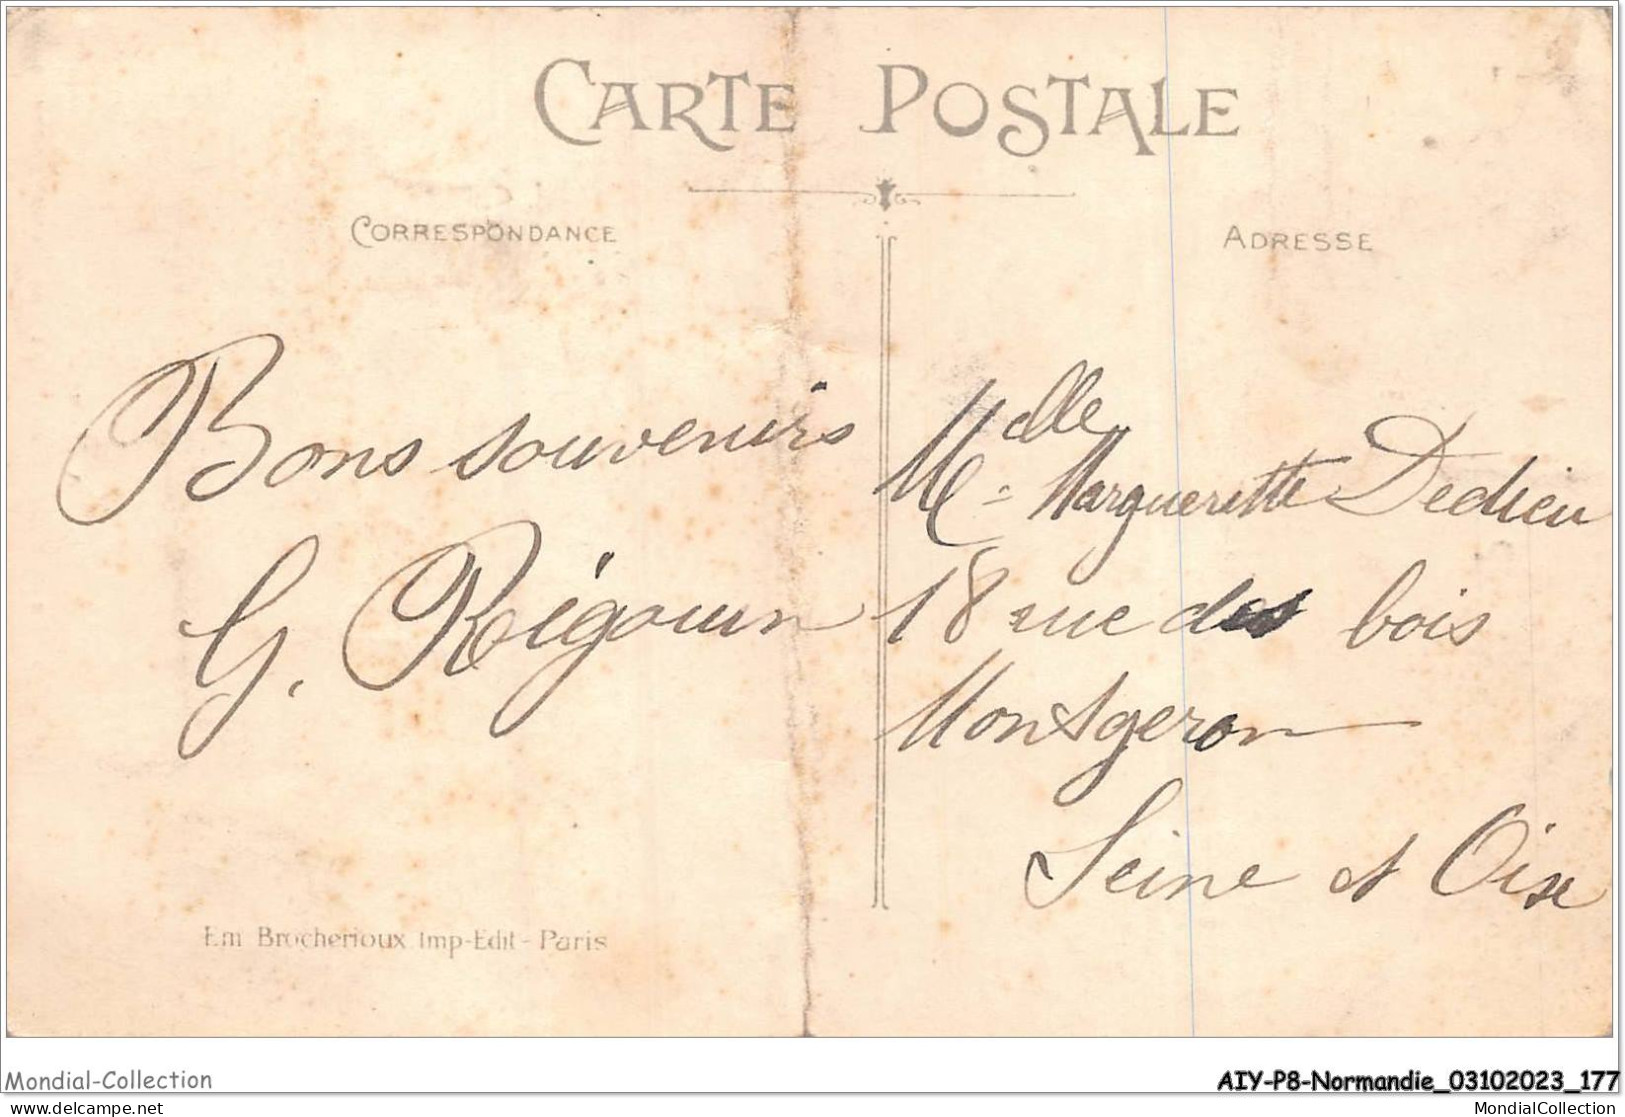 CARTE POSTALE
CORRESPONDANCE
ADRESSE
Bons souvenirs
G. Régouin
Melle Marguerette Dedieu
18 rue des bois
Montgeron
Seine et Oise
Em Brocherioux Imp-Edit - Paris
Mondial-Collection
AIY-P8-Normandie_03102023_177
delcampe.net
MondialCollection